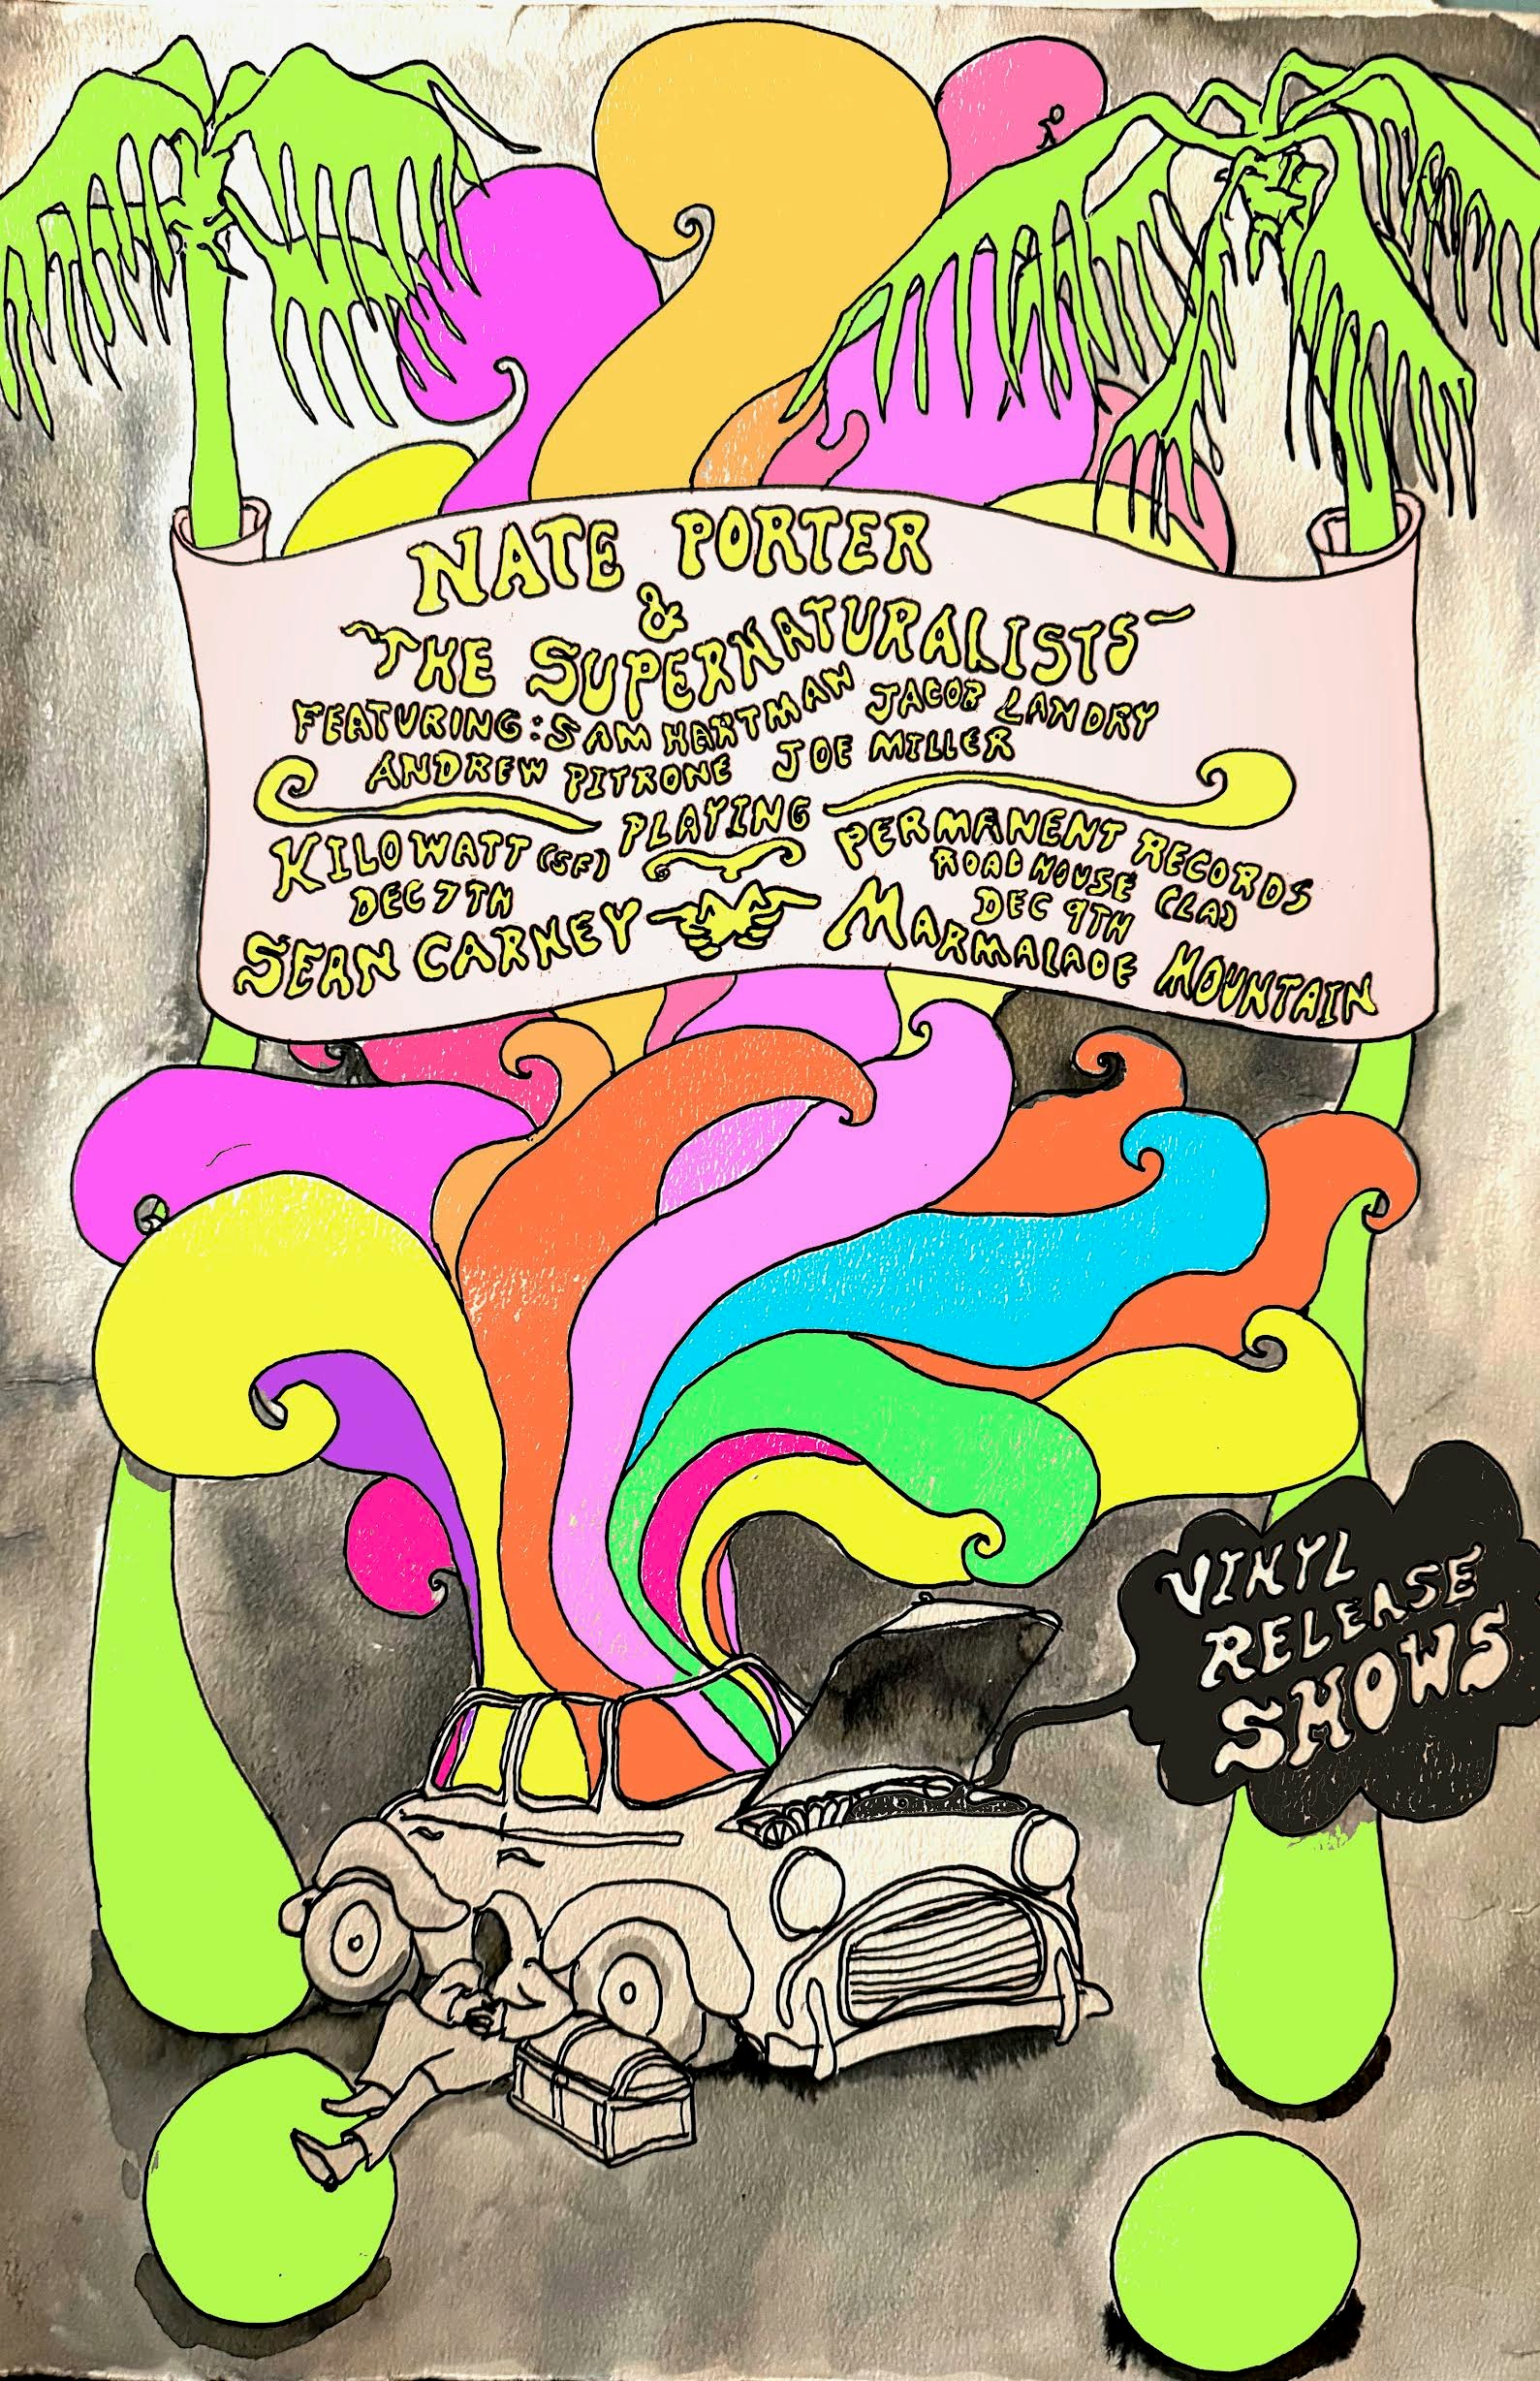 NATE PORTER
&
THE SUPERNATURALISTS
FEATURING: SAM HARTMAN JACOB LANDRY
ANDREW PITRONE JOE MILLER
PLAYING
KILOWATT (SF)
DEC 7TH
SEAN CARNEY
PERMANENT RECORDS
ROADHOUSE (LA)
DEC 9TH
MARMALADE MOUNTAIN
VINYL
RELEASE
SHOWS